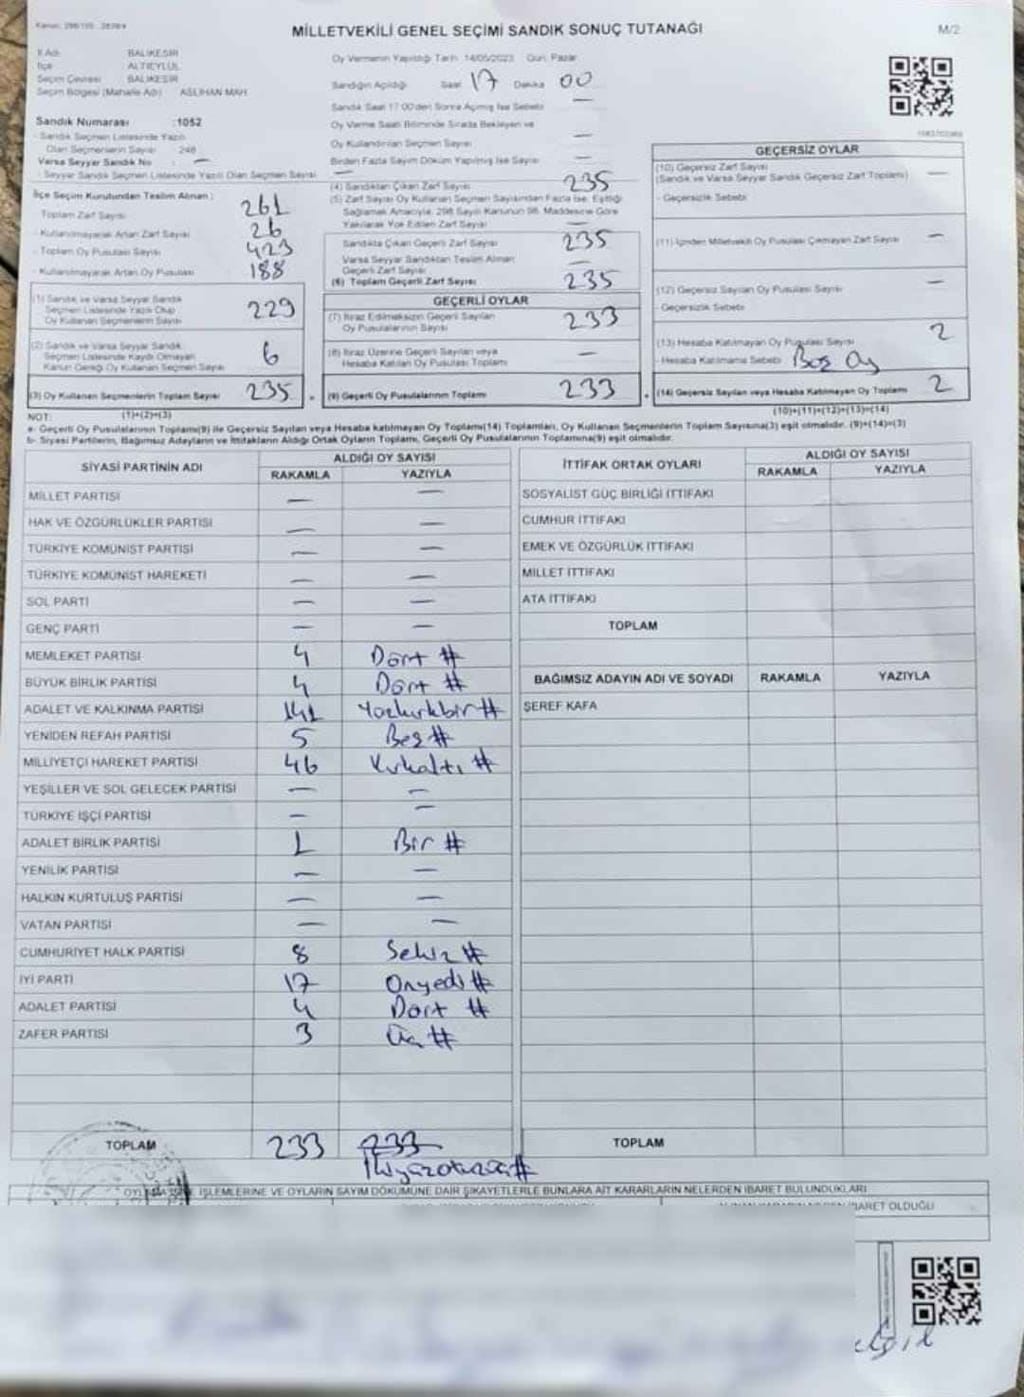 MİLLETVEKİLİ GENEL SEÇİMİ SANDIK SONUÇ TUTANAĞI
M/2
İl Adı BALIKESİR
İlçe ALTIEYLÜL
Seçim Çevresi BALIKESİR
Seçim Bölgesi (Mahalle Adı) ASLIHAN MAH.
Sandık Numarası :1052
- Sandık Seçmen Listesinde Yazılı
Olan Seçmenlerin Sayısı 248
Varsa Seyyar Sandık No : —
- Seyyar Sandık Seçmen Listesinde Yazılı Olan Seçmen Sayısı —
Oy Vermenin Yapıldığı Tarih 14/05/2023 Gün: Pazar
Sandığın Açıldığı Saat 17 Dakika 00
Sandık Saat 17:00'den Sonra Açılmış İse Sebebi —
Oy Verme Saati Bitiminde Sırada Bekleyen ve
Oy Kullandırılan Seçmen Sayısı —
Birden Fazla Sayım Döküm Yapılmış İse Sayısı —
İlçe Seçim Kurulundan Teslim Alınan :
Toplam Zarf Sayısı 261
- Kullanılmayarak Artan Zarf Sayısı 26
- Toplam Oy Pusulası Sayısı 423
- Kullanılmayarak Artan Oy Pusulası 188
(1) Sandık ve Varsa Seyyar Sandık
Seçmen Listesinde Yazılı Olup
Oy Kullanan Seçmenlerin Sayısı 229
(2) Sandık ve Varsa Seyyar Sandık
Seçmen Listesinde Kaydı Olmayan
Kanun Gereği Oy Kullanan Seçmen Sayısı 6
(3) Oy Kullanan Seçmenlerin Toplam Sayısı 235
(1)+(2)=(3)
(4) Sandıktan Çıkan Zarf Sayısı 235
(5) Zarf Sayısı Oy Kullanan Seçmen Sayısından Fazla İse, Eşitliği
Sağlamak Amacıyla, 298 Sayılı Kanunun 98. Maddesine Göre
Yakılarak Yok Edilen Zarf Sayısı —
Sandıkta Çıkan Geçerli Zarf Sayısı 235
Varsa Seyyar Sandıktan Teslim Alınan
Geçerli Zarf Sayısı —
(6) Toplam Geçerli Zarf Sayısı 235
GEÇERLİ OYLAR
(7) İtiraz Edilmeksizin Geçerli Sayılan
Oy Pusulalarının Sayısı 233
(8) İtiraz Üzerine Geçerli Sayılan veya
Hesaba Katılan Oy Pusulası Toplamı —
(9) Geçerli Oy Pusulalarının Toplamı 233
GEÇERSİZ OYLAR
(10) Geçersiz Zarf Sayısı —
(Sandık ve Varsa Seyyar Sandık Geçersiz Zarf Toplamı)
- Geçersizlik Sebebi
(11) İçinden Milletvekili Oy Pusulası Çıkmayan Zarf Sayısı —
(12) Geçersiz Sayılan Oy Pusulası Sayısı —
- Geçersizlik Sebebi
(13) Hesaba Katılmayan Oy Pusulası Sayısı 2
- Hesaba Katılmama Sebebi Boş Oy
(14) Geçersiz Sayılan veya Hesaba Katılmayan Oy Toplamı 2
(10)+(11)+(12)+(13)=(14)
NOT:
a- Geçerli Oy Pusulalarının Toplamı(9) ile Geçersiz Sayılan veya Hesaba katılmayan Oy Toplamı(14) Toplamları, Oy Kullanan Seçmenlerin Toplam Sayısına(3) eşit olmalıdır. (9)+(14)=(3)
b- Siyasi Partilerin, Bağımsız Adayların ve İttifakların Aldığı Ortak Oyların Toplamı, Geçerli Oy Pusulalarının Toplamına(9) eşit olmalıdır.
SİYASİ PARTİNİN ADI ALDIĞI OY SAYISI
RAKAMLA YAZIYLA
MİLLET PARTİSİ — —
HAK VE ÖZGÜRLÜKLER PARTİSİ — —
TÜRKİYE KOMÜNİST PARTİSİ — —
TÜRKİYE KOMÜNİST HAREKETİ — —
SOL PARTİ — —
GENÇ PARTİ — —
MEMLEKET PARTİSİ 4 Dört #
BÜYÜK BİRLİK PARTİSİ 4 Dört #
ADALET VE KALKINMA PARTİSİ 141 Yüzkırkbir #
YENİDEN REFAH PARTİSİ 5 Beş #
MİLLİYETÇİ HAREKET PARTİSİ 46 Kırkaltı #
YEŞİLLER VE SOL GELECEK PARTİSİ — —
TÜRKİYE İŞÇİ PARTİSİ — —
ADALET BİRLİK PARTİSİ 1 Bir #
YENİLİK PARTİSİ — —
HALKIN KURTULUŞ PARTİSİ — —
VATAN PARTİSİ — —
CUMHURİYET HALK PARTİSİ 8 Sekiz #
İYİ PARTİ 17 Onyedi #
ADALET PARTİSİ 4 Dört #
ZAFER PARTİSİ 3 Üç #
TOPLAM 233 233
İkiyüzotuzüç #
İTTİFAK ORTAK OYLARI ALDIĞI OY SAYISI
RAKAMLA YAZIYLA
SOSYALİST GÜÇ BİRLİĞİ İTTİFAKI
CUMHUR İTTİFAKI
EMEK VE ÖZGÜRLÜK İTTİFAKI
MİLLET İTTİFAKI
ATA İTTİFAKI
TOPLAM
BAĞIMSIZ ADAYIN ADI VE SOYADI RAKAMLA YAZIYLA
ŞEREF KAFA
TOPLAM
İŞLEMLERİNE VE OYLARIN SAYIM DÖKÜMÜNE DAİR ŞİKAYETLERLE BUNLARA AİT KARARLARIN NELERDEN İBARET BULUNDUKLARI
İBARET OLDUĞU